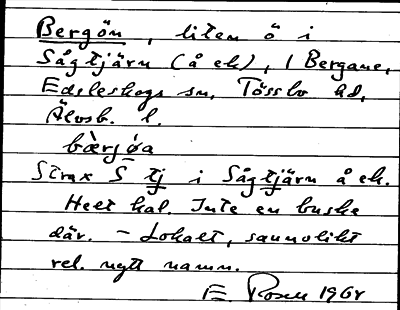 Bergön, liten ö i
Sågtjärn (å ek), / Bergane,
Edsleskogs sn, Tössbo hd,
Älvsb. l.
bærjøa
Strax S tj i Sågtjärn å ek.
Helt kal. Inte en buske
där. – Lokalt, sannolikt
rel. nytt namn.
E. Rosen